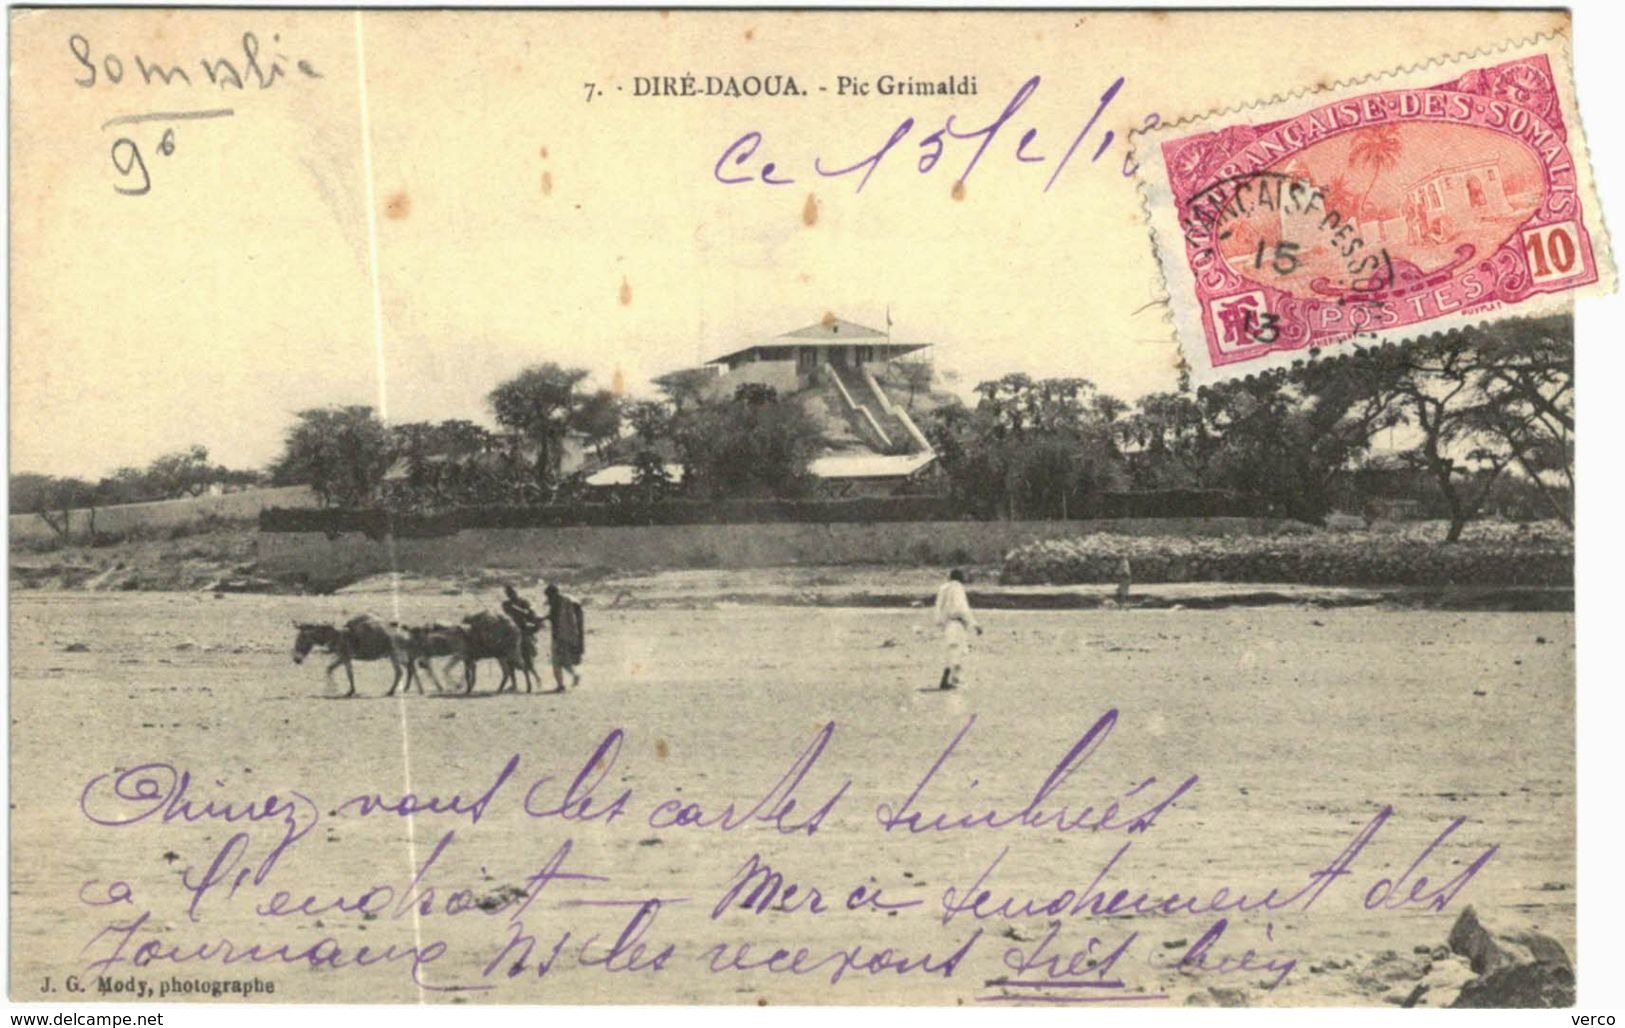 Somalie
9
7. - DIRÉ-DAOUA. - Pic Grimaldi
Ce 15/2/
CÔTE FRANÇAISE·DES·SOMALIS
10
POSTES
FRANÇAISE DES SOMALIS
15
13
RF
PUYPLAT
Aimez vous les cartes timbriés
a l'endroit — Merci tendrement des
Journaux Ns les recevons très bien
J. G. Mody, photographe
www.delcampe.net
verco